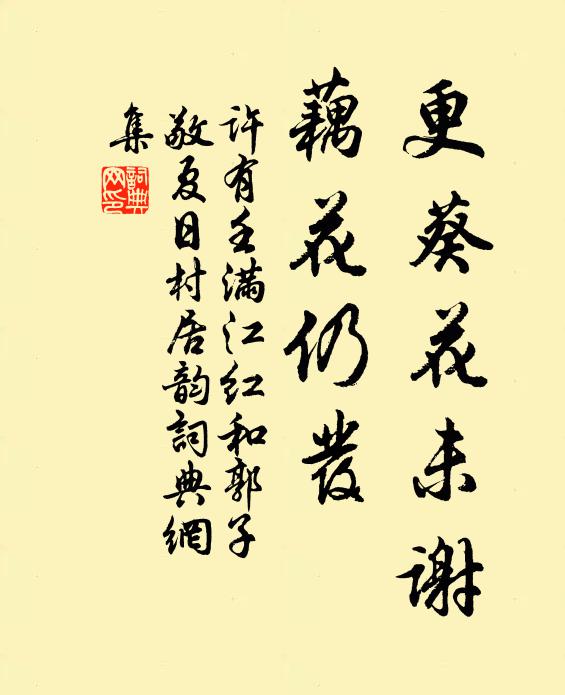 更葵花未谢
藕花仍發
许有壬满江红和郭子
敬夏日村居韵詞典網
集
詞典网印